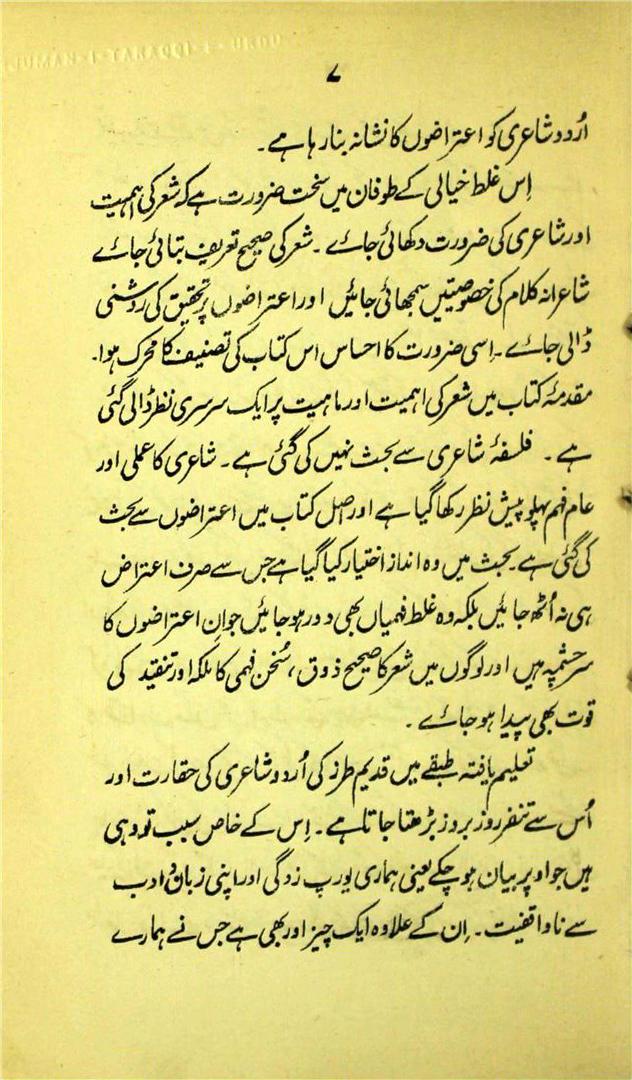 ۷
اُردو شاعری کو اعتراضوں کا نشانہ بنا رہا ہے۔
اِس غلط خیالی کے طوفان میں سخت ضرورت ہے کہ شعر کی اہمیت
اور شاعری کی ضرورت دکھائی جائے۔ شعر کی صحیح تعریف بتائی جائے
شاعرانہ کلام کی خصوصیتیں سمجھائی جائیں اور اعتراضوں پر تحقیق کی روشنی
ڈالی جائے۔ اِسی ضرورت کا احساس اس کتاب کی تصنیف کا محرک ہوا۔
مقدمۂ کتاب میں شعر کی اہمیت اور ماہیت پر ایک سرسری نظر ڈالی گئی
ہے۔ فلسفۂ شاعری سے بحث نہیں کی گئی ہے۔ شاعری کا عملی اور
عام فہم پہلو پیش نظر رکھا گیا ہے اور اصل کتاب میں اعتراضوں سے بحث
کی گئی ہے۔ بحث میں وہ انداز اختیار کیا گیا ہے جس سے صرف اعتراض
ہی نہ اُٹھ جائیں بلکہ وہ غلط فہمیاں بھی دور ہو جائیں جو اِن اعتراضوں کا
سرچشمہ ہیں اور لوگوں میں شعر کا صحیح ذوق، سُخن فہمی کا ملکہ اور تنقید کی
قوت بھی پیدا ہو جائے۔
تعلیم یافتہ طبقے میں قدیم طرز کی اُردو شاعری کی حقارت اور
اُس سے تنفر روز بروز بڑھتا جاتا ہے۔ اِس کے خاص سبب تو وہی
ہیں جو اوپر بیان ہو چکے یعنی ہماری یورپ زدگی اور اپنی زبان و ادب
سے ناواقفیت۔ اِن کے علاوہ ایک چیز اور بھی ہے جس نے ہمارے